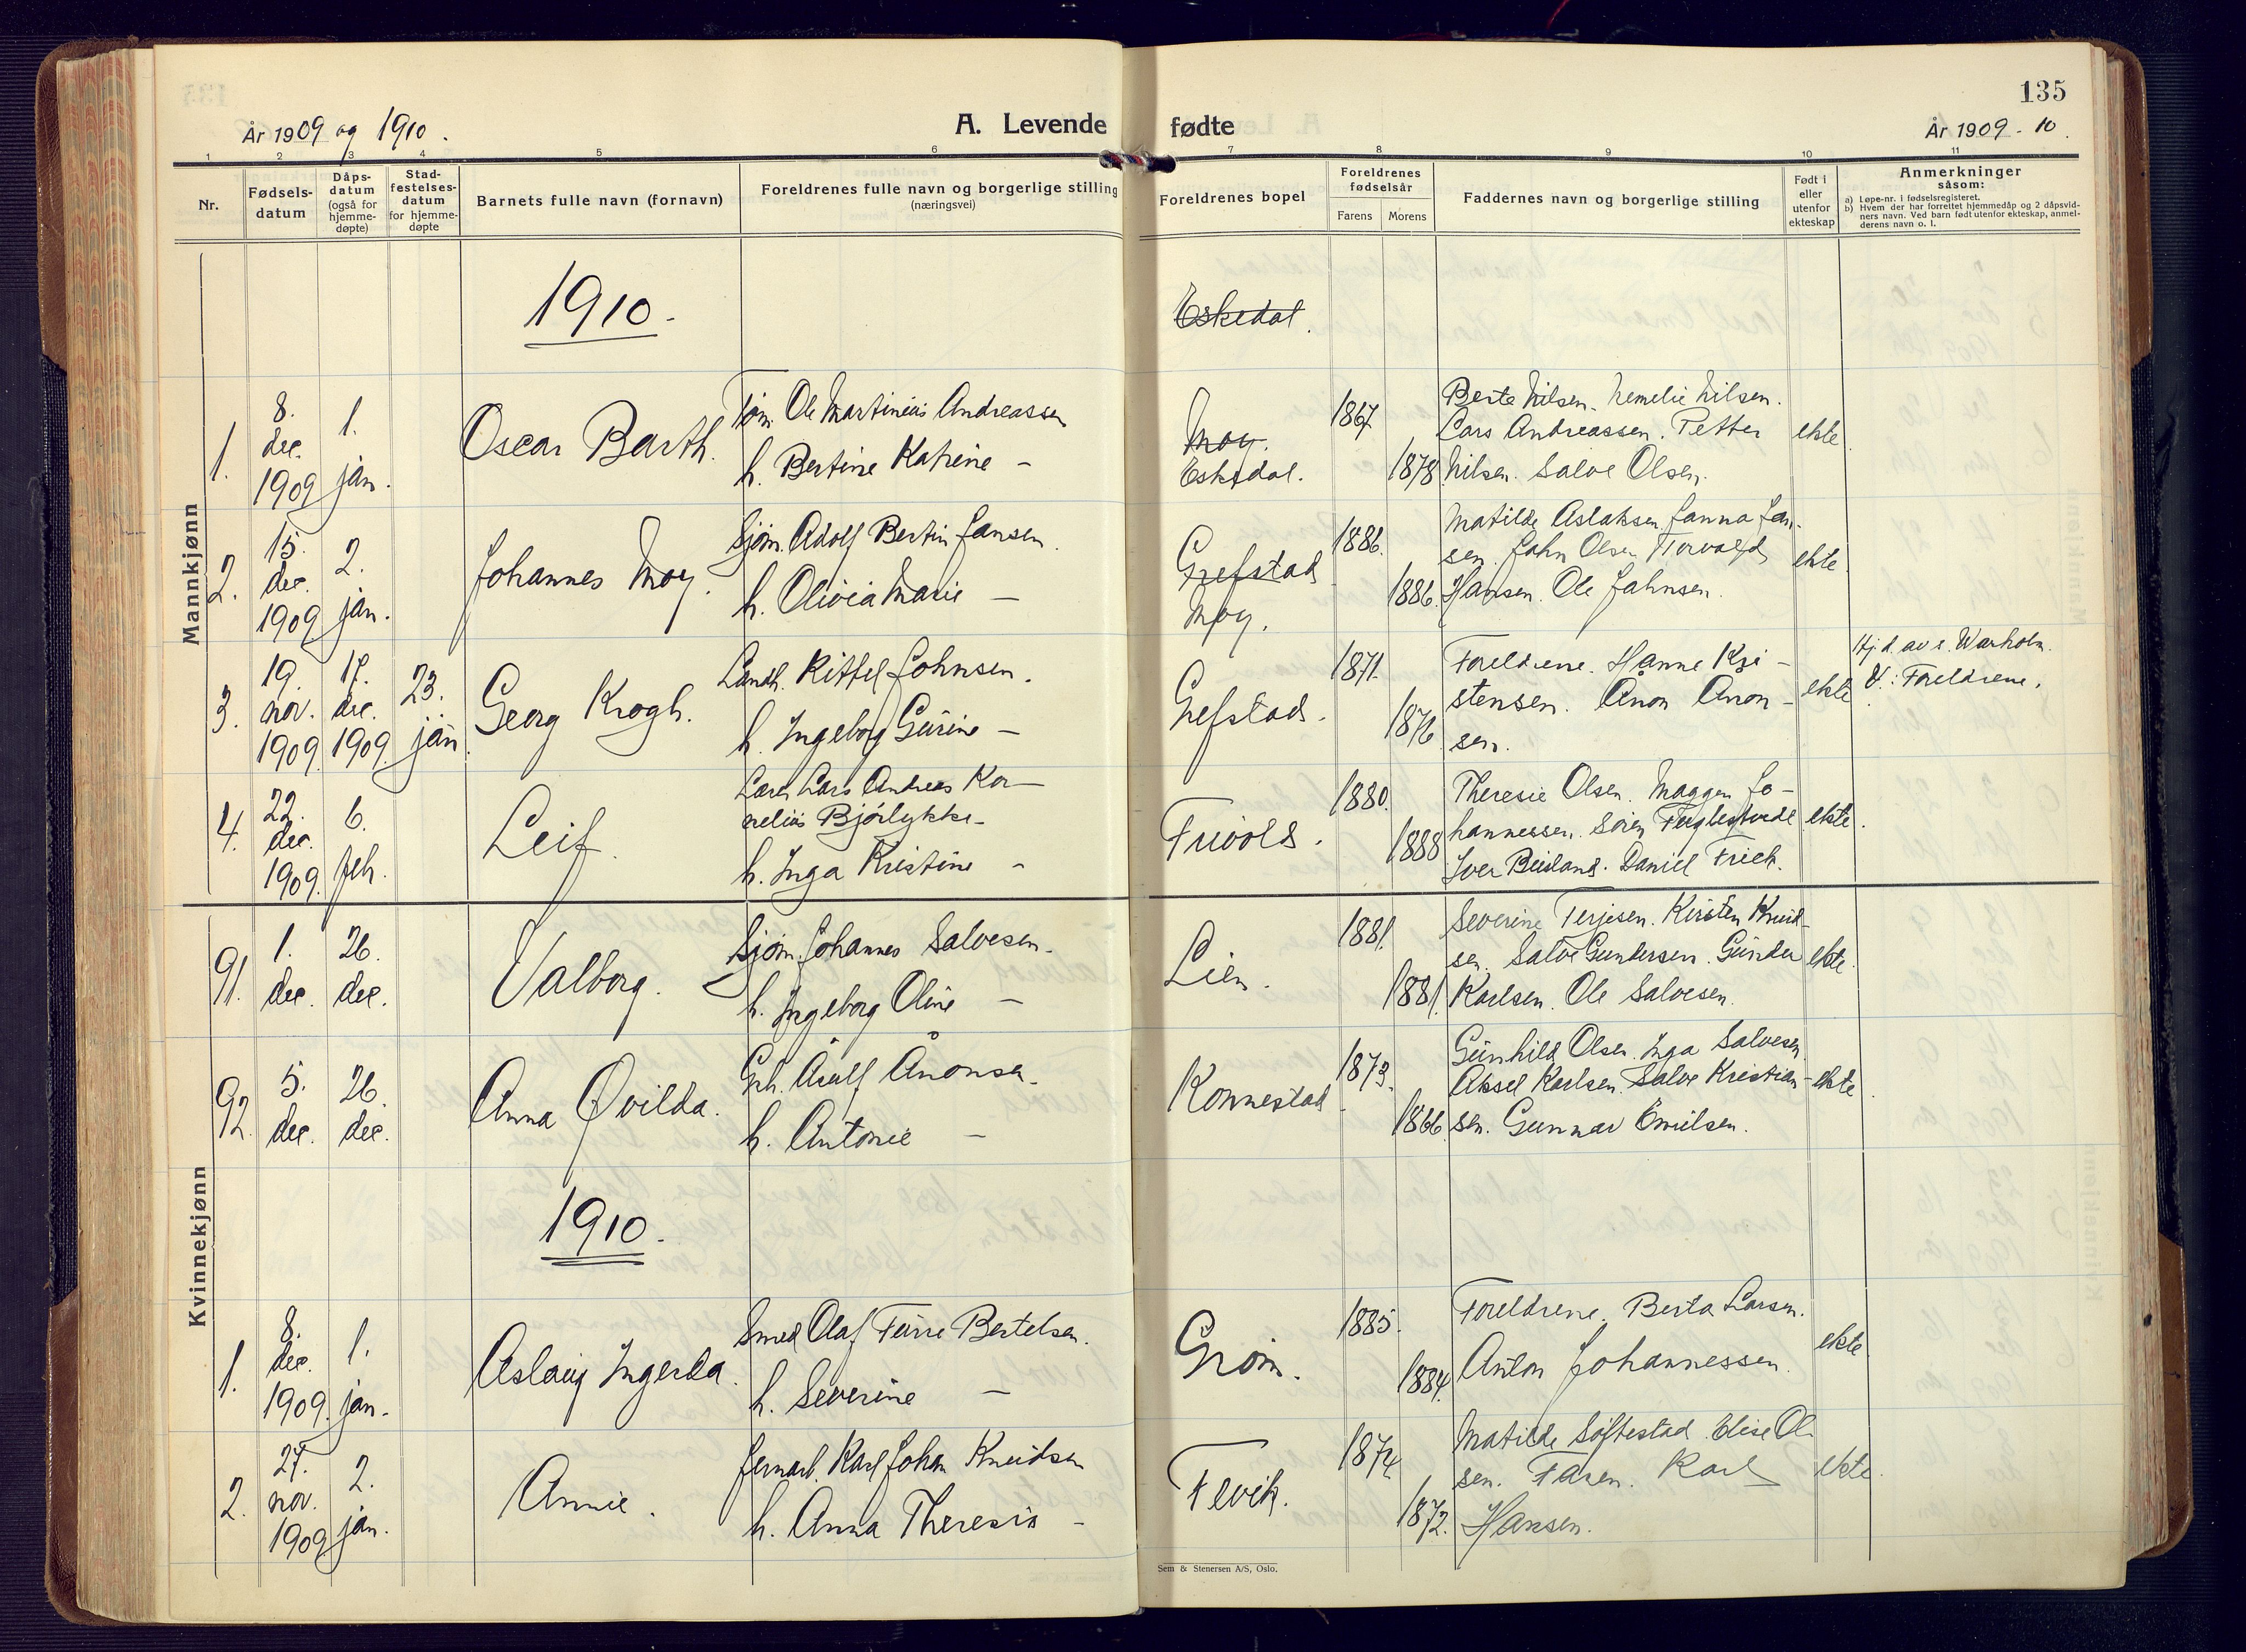 135
År 1909 og 1910.
A. Levende fødte
År 1909-10.
1 2 3 4 5 6 7 8 9 10 11
Nr.
Fødsels-
datum
Dåps-
datum
(også for
hjemme-
døpte)
Stad-
festelses-
datum
for hjemme-
døpte
Barnets fulle navn (fornavn)
Foreldrenes fulle navn og borgerlige stilling
(næringsvei)
Foreldrenes bopel
Foreldrenes
fødselsår
Farens Morens
Faddernes navn og borgerlige stilling
Født i
eller
utenfor
ekteskap
Anmerkninger
såsom:
a) Løpe-nr. i fødselsregisteret.
b) Hvem der har forrettet hjemmedåp og 2 dåpsvid-
ners navn. Ved barn født utenfor ekteskap, anmel-
derens navn o. l.
Mannkjønn
1910.
Eskedal.
1.
8.
dec.
1909
1.
jan.
Oscar Barth.
Tøm. Ole Martinius Andreassen
h. Bertine Katrine —
Moy.
Eskedal.
1867.
1878.
Berte Nilsen. Nemelie Nilsen.
Lars Andreassen. Petter
Nilsen. Salve Olsen.
ekte
2.
15.
dec.
1909
2.
jan.
Johannes Moy.
Sjøm. Adolf Bertin Jansen.
h. Olivia Marie —
Grefstad
Moy.
1886.
1886.
Matilde Aslaksen. Janna Jan-
sen. John Olsen Torvald
Hansen. Ole Jahnsen.
ekte
3.
19.
nov.
1909.
17.
dec.
1909.
23.
jan.
Georg Krogh.
Landh. Kittel Johnsen.
h. Ingeborg Gurine —
Grefstad.
1871.
1876
Foreldrene. Hanne Kri-
stensen. Anon Anon-
sen.
ekte
Hj. d. av e. Warholm.
V.: Foreldrene.
4.
22.
dec.
1909.
6.
feb.
Leif.
Lærer Lars Andreas Kor-
nelius Bjørlykke-
h. Inga Kristine -
Frivold.
1880.
1888
Theresie Olsen. Maggen Jo-
hannessen. Søren Fuglestvedt
Iver Beisland. Daniel Frich.
ekte.
Kvinnekjønn
91.
1.
dec.
26.
dec.
Valborg.
Sjøm. Johannes Salvesen.
h. Ingeborg Oline —
Lien.
1881.
1881.
Severine Terjesen. Kirsten Knud-
sen. Salve Gundersen. Gunder
Karlsen. Ole Salvesen.
ekte.
92.
5.
dec.
26.
dec.
Anna Qvilda.
Gbr. Asulf Ånonsen.
h. Antonie —
Konnestad
1873.
1866.
Gunhild Olsen. Inga Salvesen
Aksel Karlsen. Salve Kristian-
sen. Gunnar Emilsen.
ekte
1910.
1.
8.
dec.
1909.
1.
jan.
Aslaug Ingerda.
Smed Olaf Ferre Bertelsen.
h. Severine —
Grøm.
1885.
1884.
Foreldrene. Berta Larsen.
Anton Johannessen.
ekte
2.
27.
nov.
1909
2.
jan.
Annie.
Jernarb. Karl Johan Knudsen
h. Anna Theresia -
Fevik.
1874.
1872.
Matilde Søftestad. Elise Ol-
sen. Faren. Karl
Hansen.
ekte.
Sem & Stenersen A/S, Oslo.